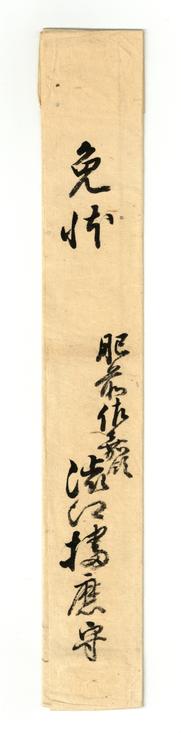 免状
肥前佐嘉領
澁江播磨守